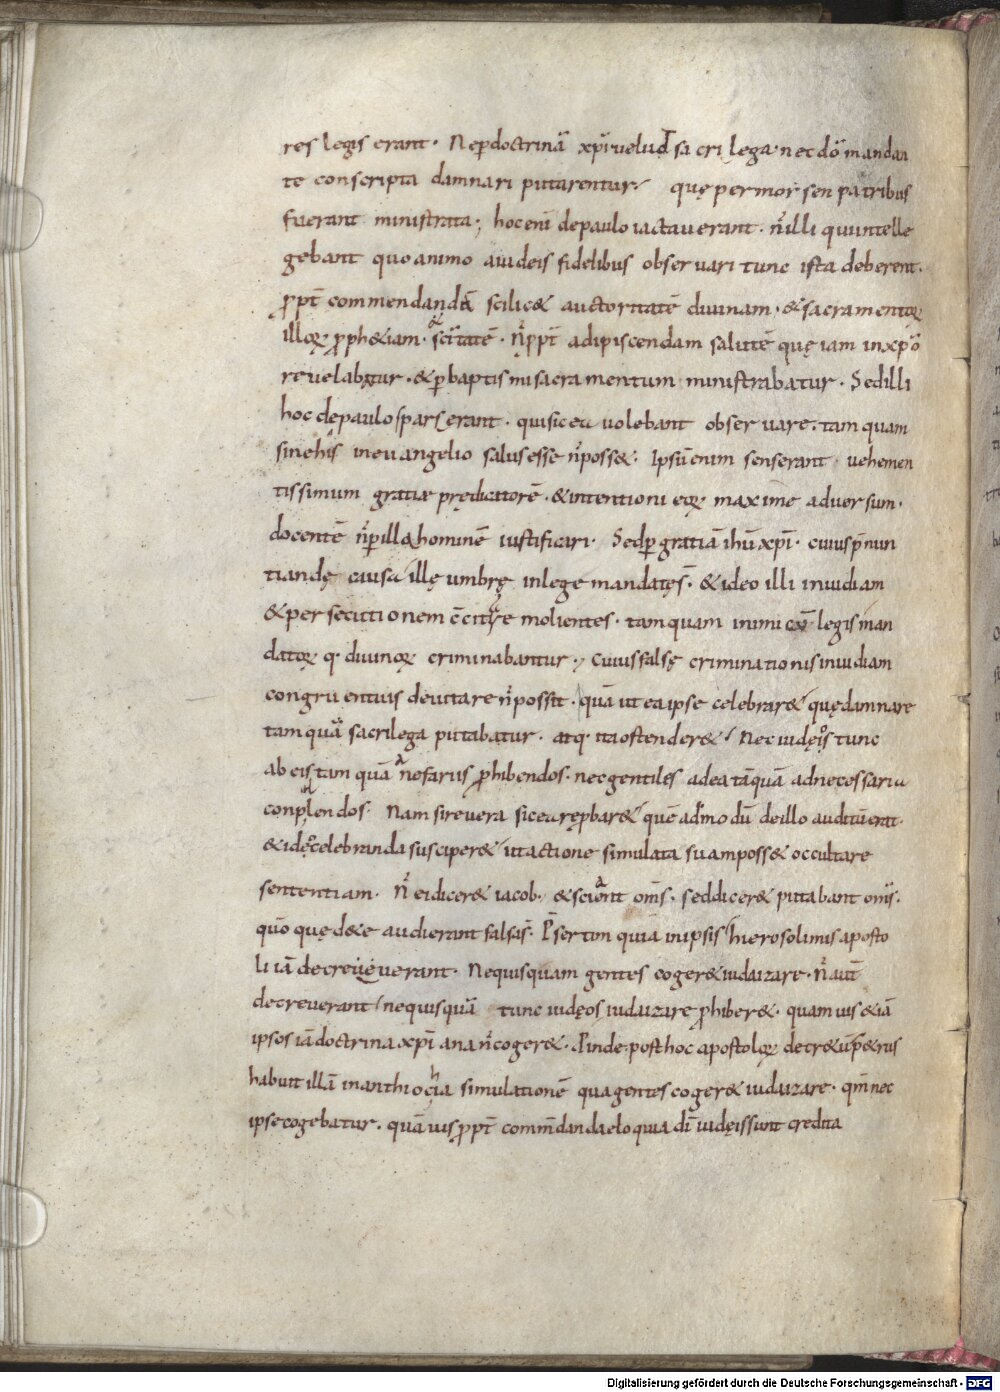 res legis erant· Neꝑdoctrinā xp̄i uelud sacrilega· nec dō mandan
te conscripta damnari putarentur quę per moisen patribus
fuerant ministrata; hoc enī de paulo iactauerant· n̄ illi qui intelle
gebant quo animo a iudeis fidelibus obseruari tunc ista deberent·
ꝓpt̄ commendandā scilic& auctoritatē diuinam· & sacramentoꝝ
illoꝝ ꝓph&iam sc̄itatē· n̄ ꝓpt̄ adipiscendam salutē quę iam in xp̄o
reuelabatur· & ꝑ baptismi sacramentum ministrabatur· Sed illi
hoc de paulo sparserant· qui sic ea uolebant obseruare· tamquam
sine his in euangelio salus esse n̄ poss&· Ipsū enim senserant uehemen
tissimum gratiæ prędicatorē· & intentioni eoꝝ maxime aduersum·
docentē n̄ ꝑ illa hominē iustificari· Sed ꝑ gratiā ih̄u xp̄i· cuius p̄nun
tiandę causa illę umbrę in lege mandatę s̄· & ideo illi inuidiam
& persecutionem c̄citare molientes· tamquam inimicū legis man
datoꝝ q· diuinoꝝ criminabantur·, cuius falsę criminationis inuidiam
congruentius deuitare n̄ possit· quā ut ea ipse celebrar& quę damnare
tamquā sacrilega putabatur· atq· ita ostender& nec iudęos tunc
ab eis tamquā a nefariis ꝓhibendos· nec gentiles ad ea tāquā ad necessaria
conpellendos· Nam si reuera sic ea rępbar& quē admodū de illo auditū erat·
& idęo celebranda susciper& ut actione simulata suam poss& occultare
sententiam· n̄ ei dicer& iacob· & scient om̄s· sed dicer& putabant om̄s·
qūo quę de te audierant falsa s̄· P̄sertim quia in ipsis hierosolimis aposto
li iā decreuerant· Ne quisquam gentes coger& iudaizare· n̄ aut̄
decreuerant ne quisquā tunc iudęos iudaizare ꝓhiber&· quamuis &iā
ipsos iā doctrina xp̄iana n̄ coger&· Proinde· post hoc apostoloꝝ decr&ū p&rus
habuit illā in anthiochia simulationē qua gentes coger& iudaizare· qm̄ nec
ipse cogebatur· quāuis ꝓpt̄ comm̄danda eloquia dī iudęis sunt credita
Digitalisierung gefördert durch die Deutsche Forschungsgemeinschaft - DFG